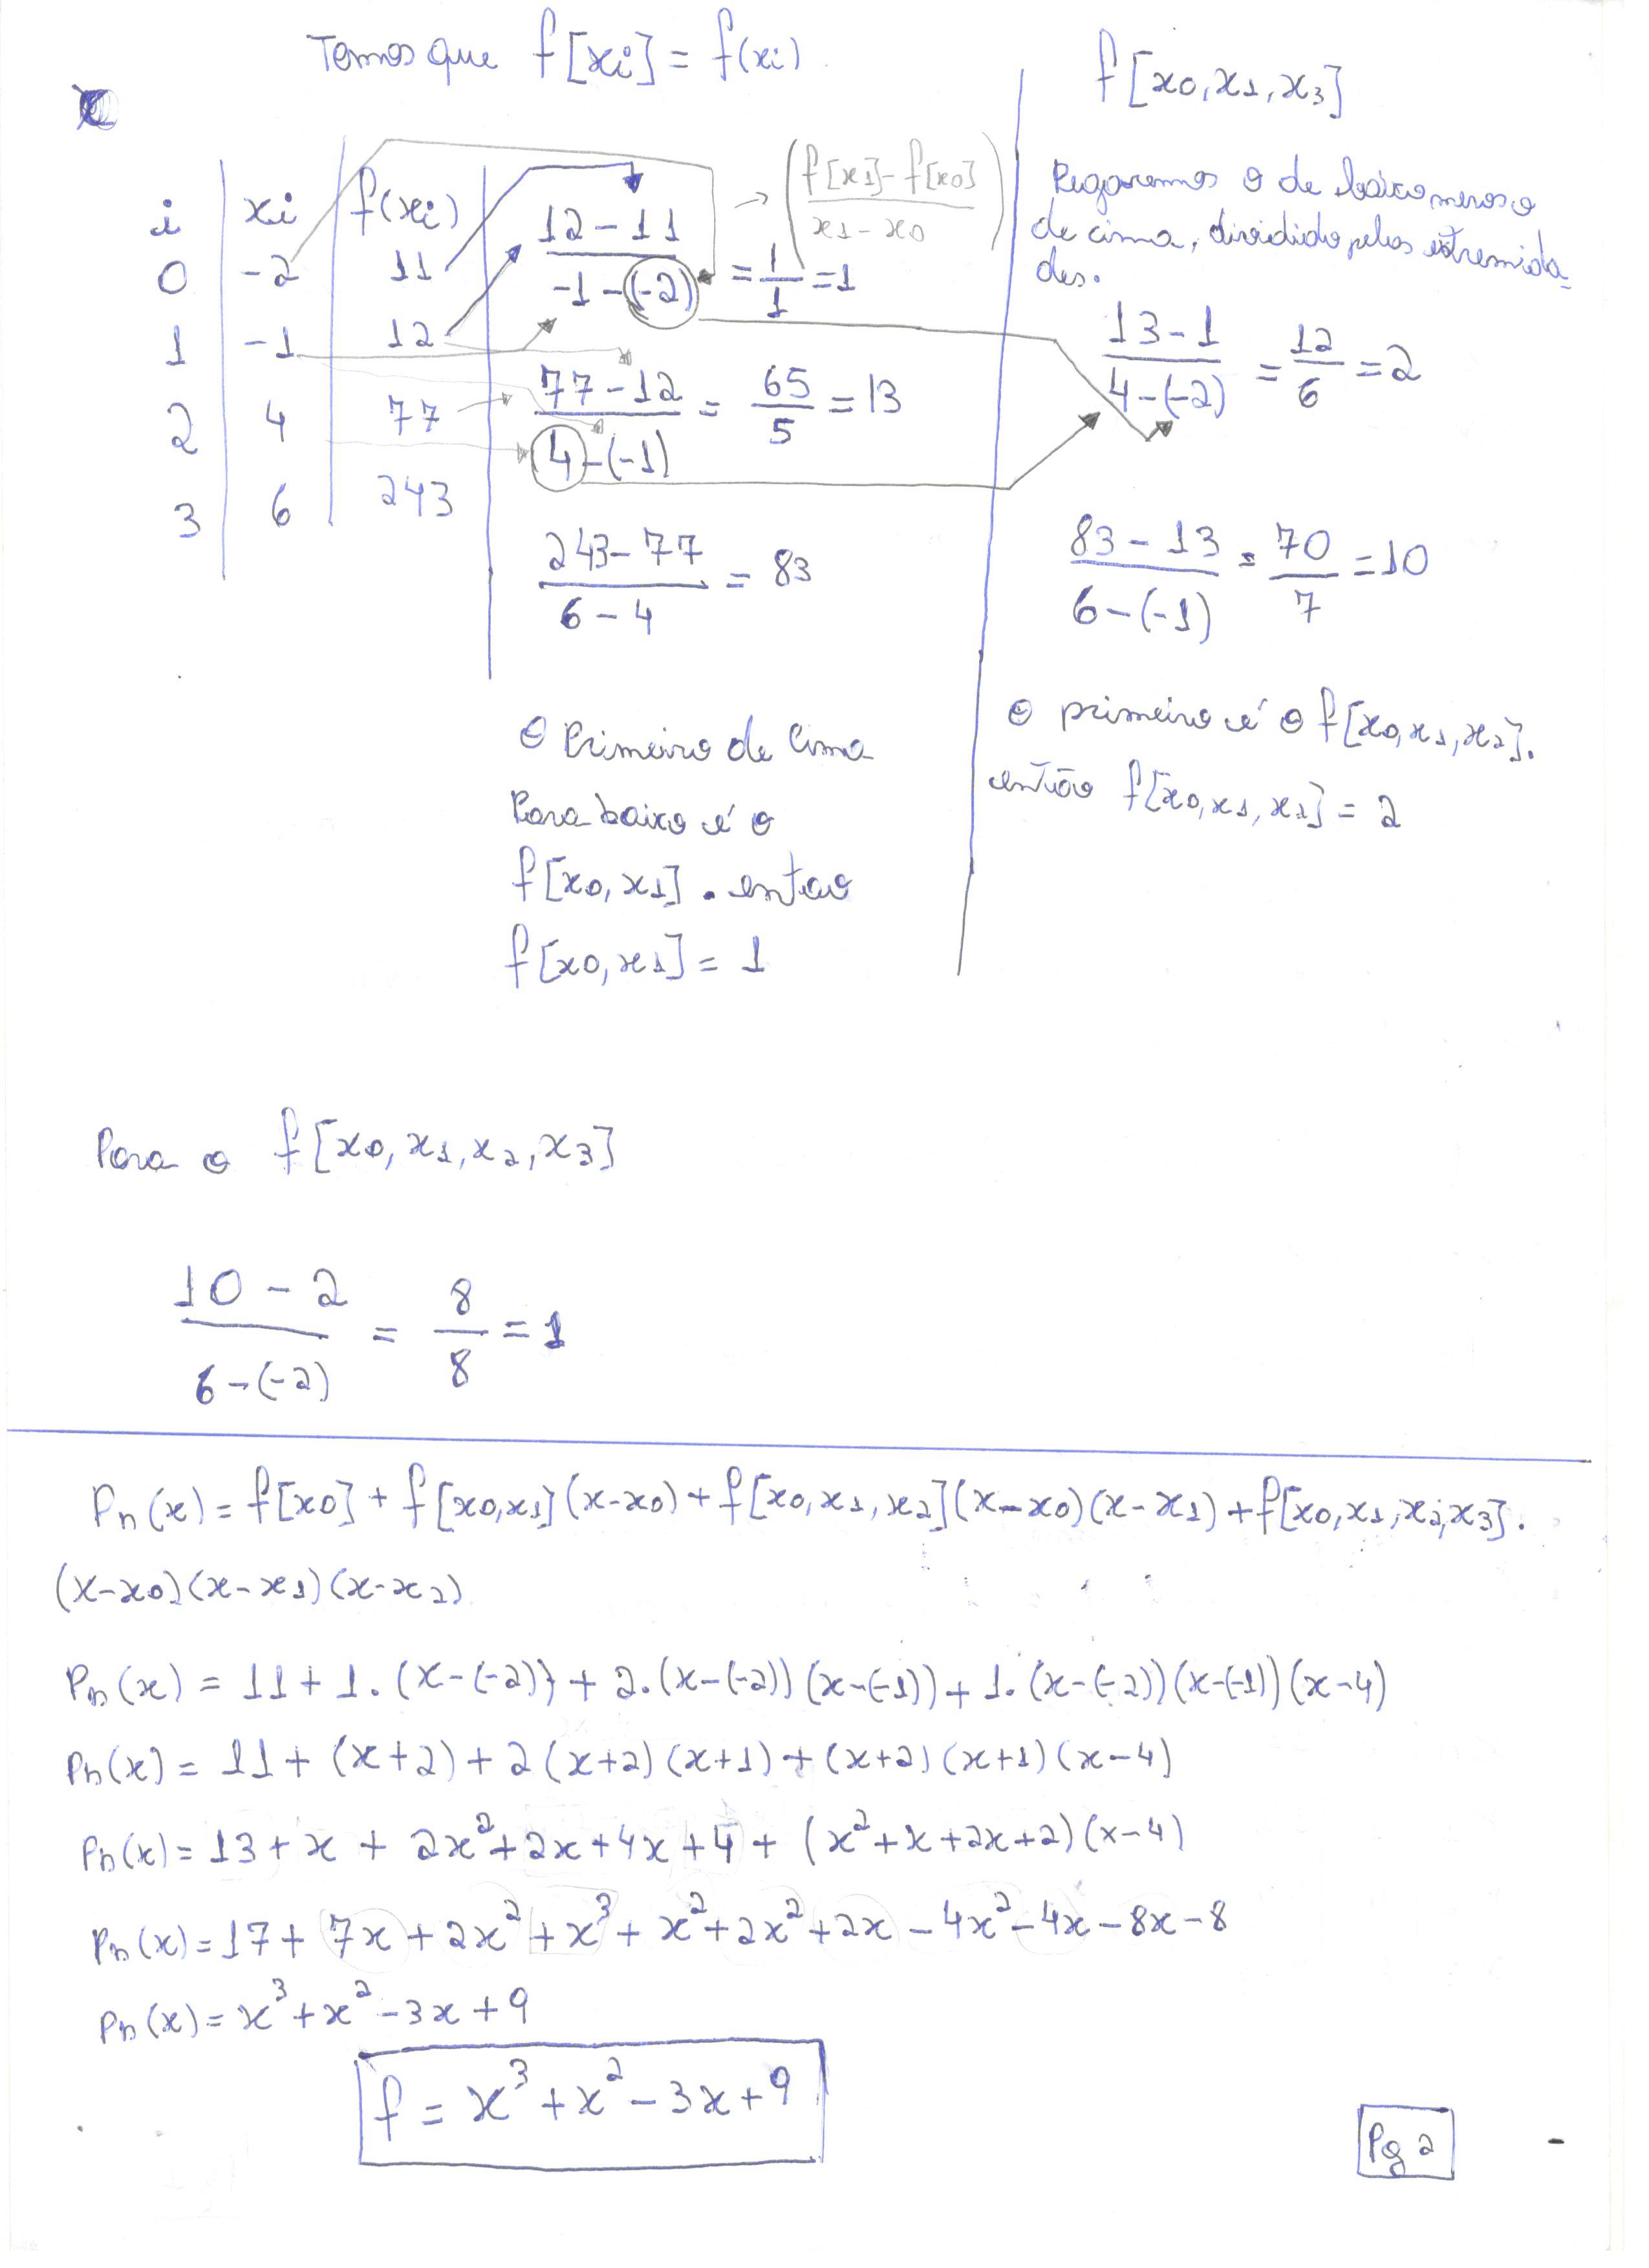 Temos que f[xi] = f(xi)
i xi f(xi)
0 -2 11
1 -1 12
2 4 77
3 6 243
12-11 / -1-(-2) = 1/1 = 1
→ (f[x1]-f[x0] / x1-x0)
77-12 / 4-(-1) = 65/5 = 13
243-77 / 6-4 = 83
O Primeiro de Cima
Para baixo é o
f[x0, x1]. entao
f[x0, x1] = 1
f[x0, x1, x3]
Pegaremos o de baixo menos o
de cima, dividido pelas extremida-
des.
13-1 / 4-(-2) = 12/6 = 2
83-13 / 6-(-1) = 70/7 = 10
O primeiro é o f[x0, x1, x2].
então f[x0, x1, x2] = 2
Para o f[x0, x1, x2, x3]
10-2 / 6-(-2) = 8/8 = 1
Pn(x) = f[x0] + f[x0,x1](x-x0) + f[x0, x1, x2](x-x0)(x-x1) + f[x0, x1, x2, x3].
(x-x0)(x-x1)(x-x2)
Pn(x) = 11 + 1.(x-(-2)) + 2.(x-(-2))(x-(-1)) + 1.(x-(-2))(x-(-1))(x-4)
Pn(x) = 11 + (x+2) + 2(x+2)(x+1) + (x+2)(x+1)(x-4)
Pn(x) = 13 + x + 2x² + 2x + 4x + 4 + (x² + x + 2x + 2)(x-4)
Pn(x) = 17 + 7x + 2x² + x³ + x² + 2x² + 2x - 4x² - 4x - 8x - 8
Pn(x) = x³ + x² - 3x + 9
f = x³ + x² - 3x + 9
Pg 2